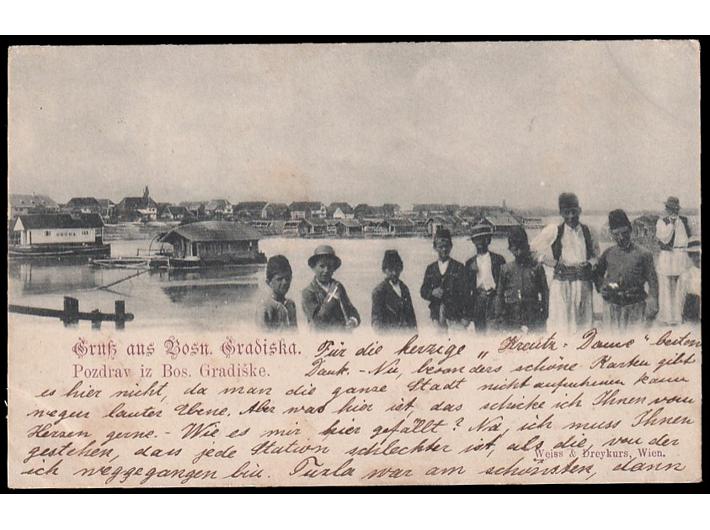 Gruß aus Bosn. Gradiska.
Pozdrav iz Bos. Gradiške.
Für die herzige „Kreutz-Dame" besten
Dank. - Nu, besonders schöne Karten gibt
es hier nicht, da man die ganze Stadt nicht aufnehmen kann
wegen lauter Ebene. Aber was hier ist, das schicke ich Ihnen vom
Herzen gerne. - Wie es mir hier gefällt? Na, ich muss Ihnen
gestehen, dass jede Station schlechter ist, als die, von der
Weiss & Dreykurs, Wien.
ich weggegangen bin. Tuzla war am schönsten, dann